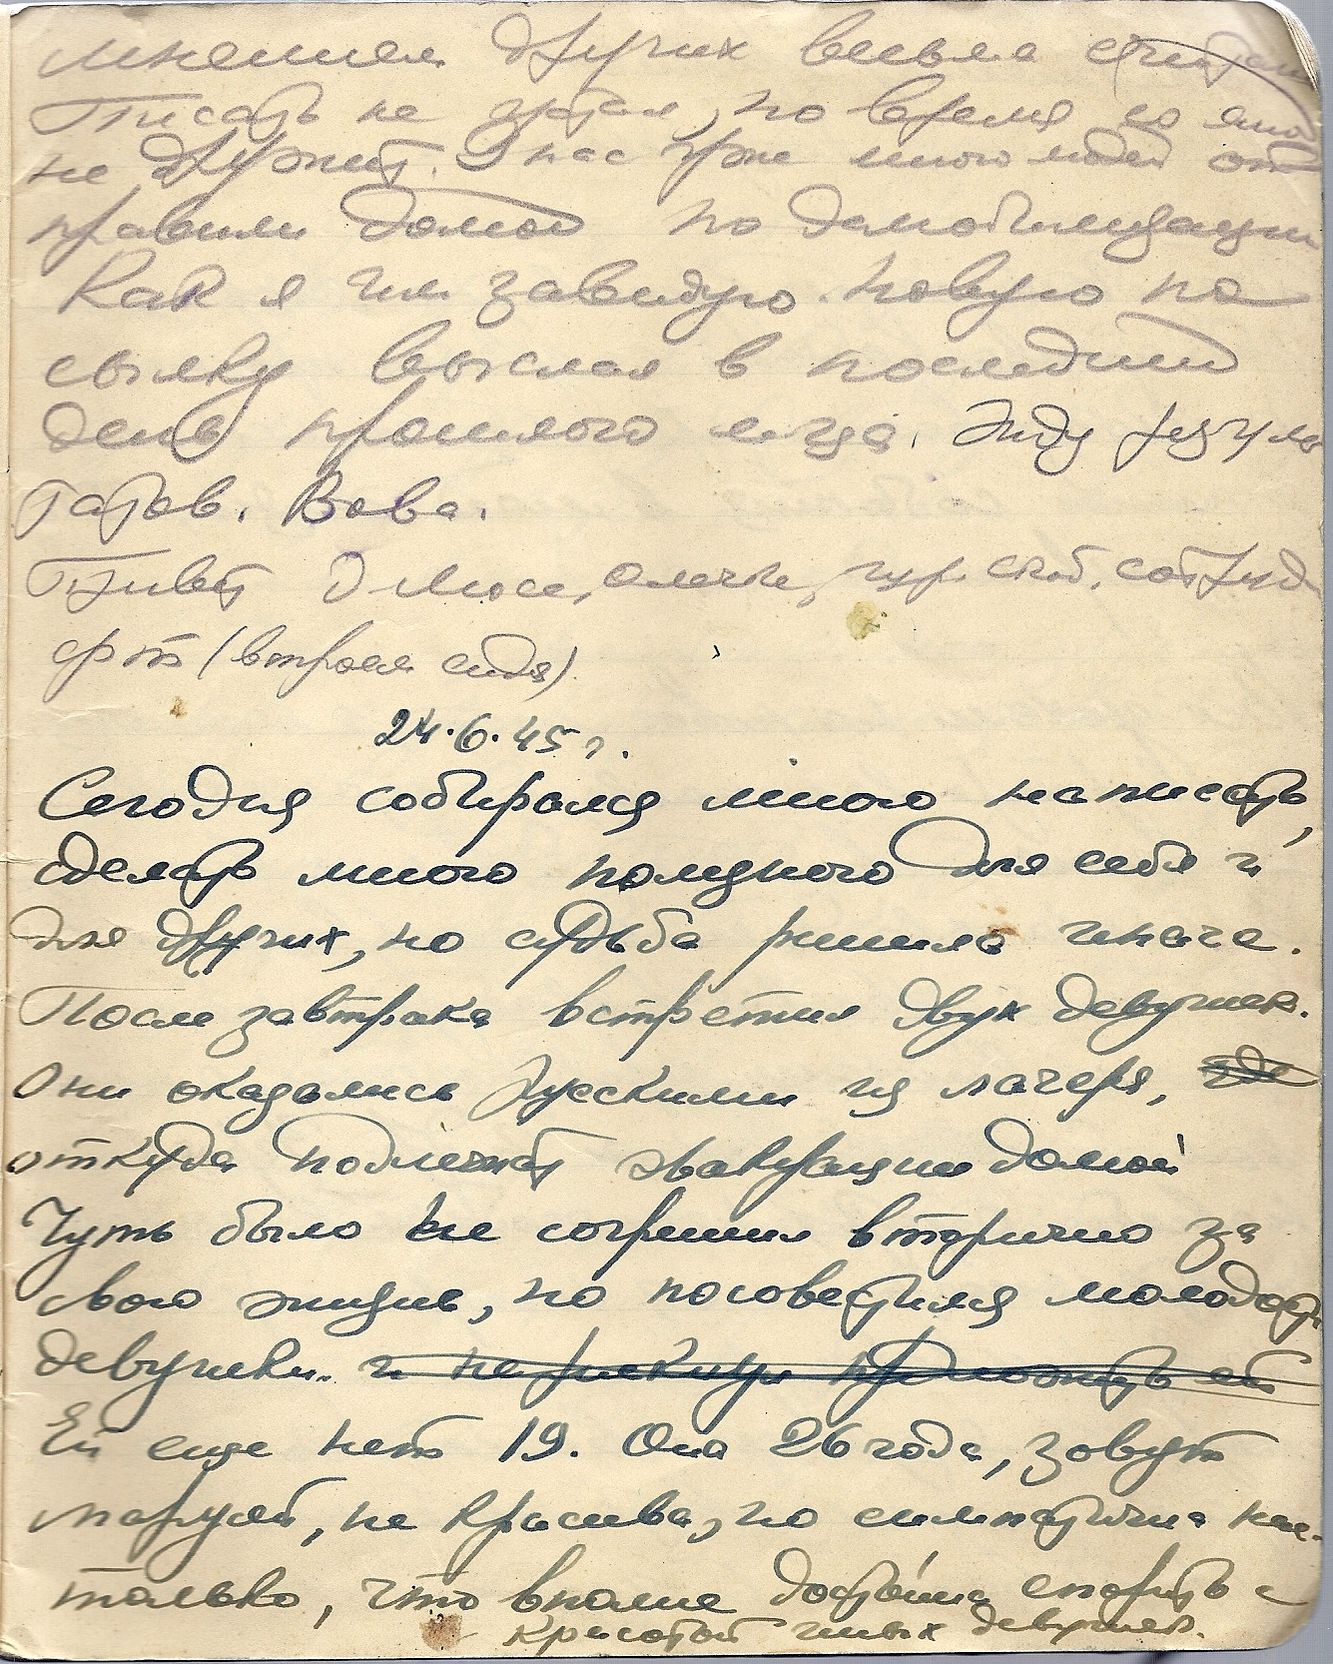 мнения других весьма считаю
Писать не устал, но время со мной
не дружит. У нас уже много людей от
правили домой по демобилизации
Как я им завидую. Новую по
сылку выслал в последний
день прошлого м-ца. Жду резуль
татов. Вова.
Привет Д Люсе, Олечке,
24.6.45 г.
Сегодня собирался много написать,
сделать много полезного для себя и
для других, но судьба решила иначе.
После завтрака встретил двух девушек.
Они оказались русскими из лагеря, где
откуда подлежат эвакуации домой
Чуть было не согрешил вторично за
свою жизнь, но посовестился молодой
девушки. и не рискнул предложить ей
Ей еще нет 19. Она 26 года, зовут
Марусей, не красива, но симпатична нас-
только, что вполне достойна спорить с
красотой иных девушек.